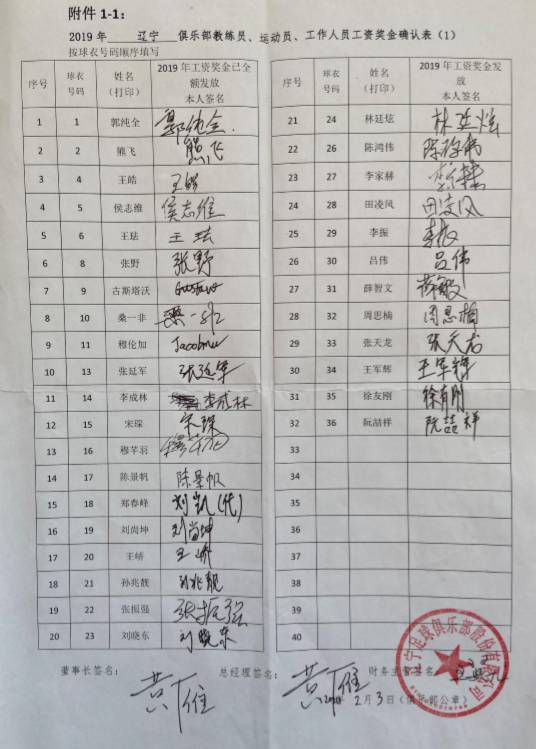 附件 1-1：
2019 年 辽宁 俱乐部教练员、运动员、工作人员工资奖金确认表（1）
按球衣号码顺序填写
序号 球衣号码 姓名（打印） 2019 年工资奖金已全额发放 本人签名
1 1 郭纯全 郭纯全
2 2 熊飞 熊飞
3 4 王皓 王皓
4 5 侯志维 侯志维
5 6 王珐 王珐
6 8 张野 张野
7 9 古斯塔沃 Gustavo
8 10 桑一非 桑一非
9 11 穆伦加
10 13 张延军 张延军
11 14 李成林 李成林
12 15 宋琛 宋琛
13 16 穆芊羽
14 17 陈景帆 陈景帆
15 18 郑春峰 刘凯(代)
16 19 刘尚坤 刘尚坤
17 20 王峤 王峤
18 21 孙兆靓 孙兆靓
19 22 张振强 张振强
20 23 刘晓东 刘晓东
序号 球衣号码 姓名（打印） 2019 年工资奖金发放 本人签名
21 24 林廷炫 林廷炫
22 26 陈鸿伟
23 27 李家赫
24 28 田凌风 田凌风
25 29 李振 李振
26 30 吕伟 吕伟
27 31 薛智文
28 32 周思楠 周思楠
29 33 张天龙 张天龙
30 34 王军辉 王军辉
31 35 徐友刚 徐有刚
32 36 阮喆祥 阮喆祥
33
34
35
36
37
38
39
40
董事长签名： 总经理签名： 财务主管签名：
黄雁 黄雁
2月3日（俱乐部公章）
辽宁足球俱乐部股份有限公司